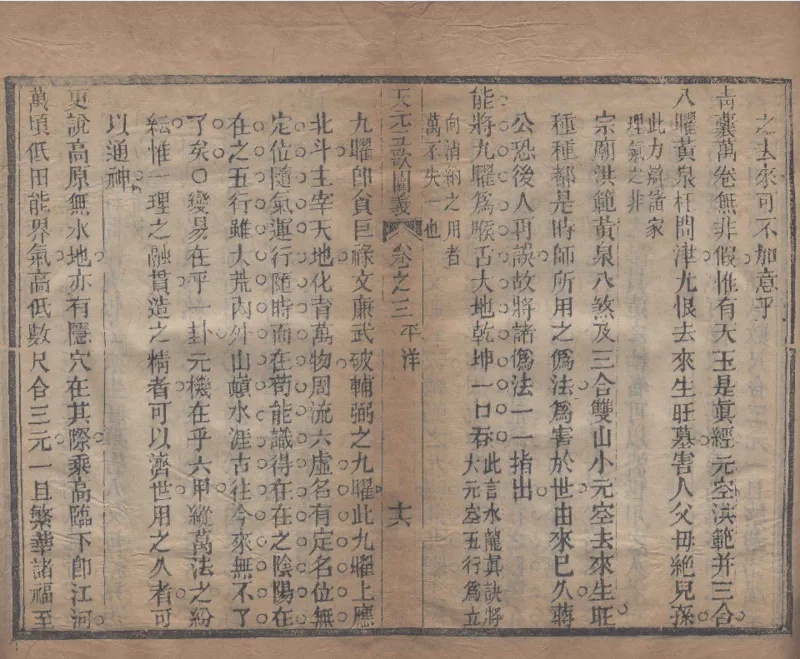 之去來可不如意乎
青囊萬卷無非假惟有天玉是眞經元空洪範并三合
八曜黃泉枉問津尤恨去來生旺墓害人父母絕兒孫
此力辯諸家
理氣之非
宗廟洪範黃泉八煞及三合雙山小元空去來生旺
種種都是時師所用之僞法爲害於世由來已久蔣
公恐後人再誤故將諸僞法一一指出
能將九曜爲喉舌大地乾坤一口吞此言水龍眞訣將
大元空五行爲立
向消納之用者
萬不失一也
天元五歌闡義 卷之三 平洋 十六
九曜卽貪巨祿文廉武破輔弼之九曜此九曜上應
北斗主宰天地化育萬物周流六虛名有定名位無
定位隨氣運行隨時而在苟能識得在在之陰陽在
在之五行雖大荒內外山巔水涯古往今來無不了
了矣○變易在乎一卦元機在乎六甲縱萬法之紛
紜惟一理之融貫造之精者可以濟世用之久者可
以通神
更說高原無水地亦有隱穴在其際乘高臨下卽江河
萬頃低田能界氣高低數尺合三元一旦繁華諸福至